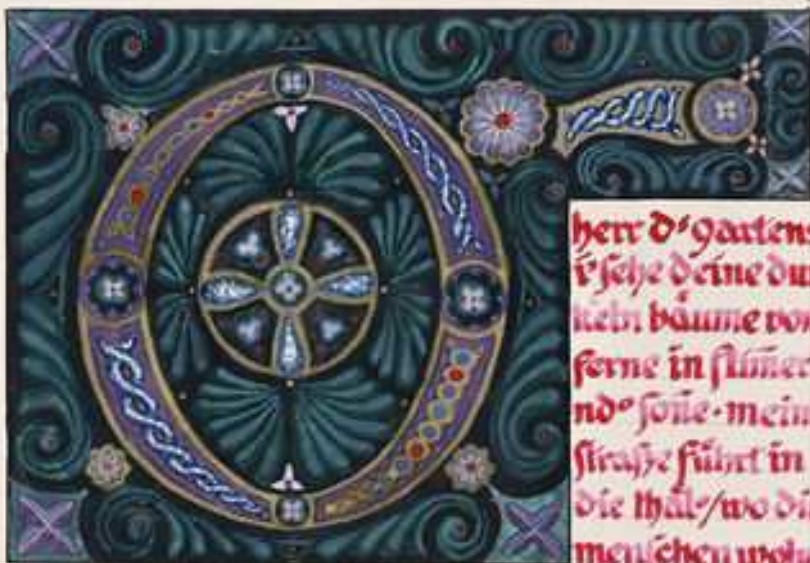 O
herr d' gartens
i' sehe deine du
keln bäume von
ferne in flim̄er
nd° son̄e · mein
straße führt in
die thäl'/wo di
menschen woh